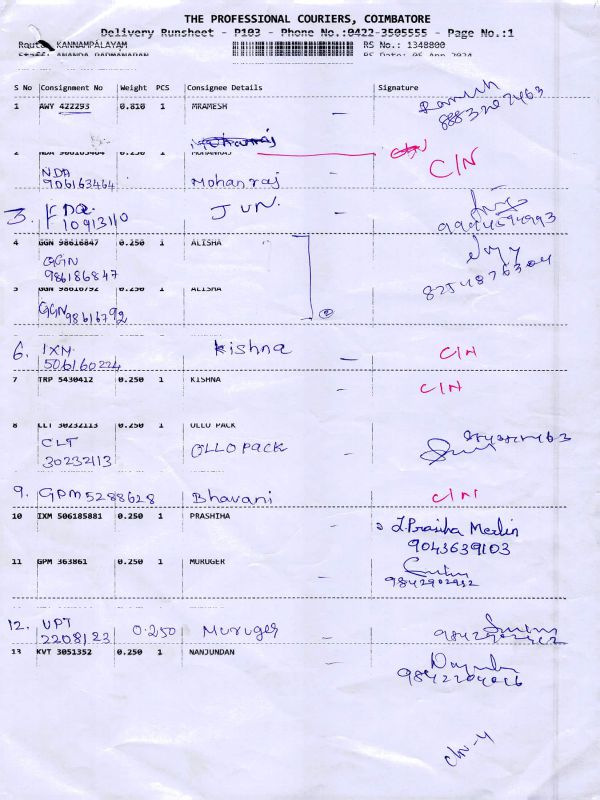 THE PROFESSIONAL COURIERS, COIMBATORE
Delivery Runsheet - P103 - Phone No.:0422-3505555 - Page No.:1
Route: KANNAMPALAYAM RS No.: 1348800
Staff: ANANDA PADMANABAN RS Date: 05 Apr 2024
S No Consignment No Weight PCS Consignee Details Signature
1 AWY 422293 0.810 1 MRAMESH -
2 NDA 906163464 0.250 1 MOHANRAJ
NDA Mohanraj C/N
906163464
3. JUN.
10913110
4 GGN 98616847 0.250 1 ALISHA
GGN
986186847
5 GGN 98616792 0.250 1 ALISHA
GGN 98616792 2
6. IXM Kishna - C/N
506160224
7 TRP 5430412 0.250 1 KISHNA - C/N
8 CLT 30232113 0.250 1 OLLO PACK
CLT OLLO PACK -
30232113
9. GPM 5288628 Bhavani - C/N
10 IXM 506185881 0.250 1 PRASHIHA - J.Prasiha Merlin
9043639103
11 GPM 363861 0.250 1 MURUGER -
9842902932
12. UPT 0.250 Muruger -
2208123
13 KVT 3051352 0.250 1 NANJUNDAN -
C/N-4